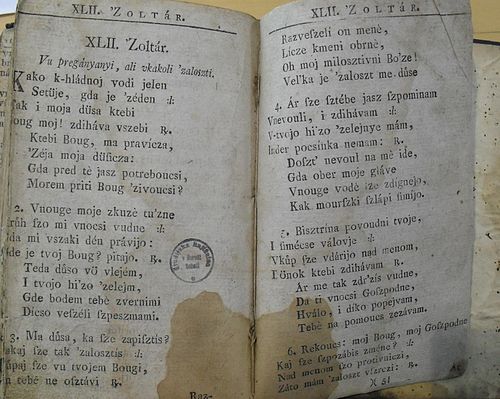 XLII. 'ZOLTÁR.
XLII. 'Zoltár.
Vu pregányanyi, ali vkákoli 'zaloszti.
Kako k-hládnoj vodi jelen
Setüje, gda je 'zéden :/:
Tak i moja düsa ktebi
Boug moj! zdiháva vszebi ℞.
Ktebi Boug, ma pravicza,
'Zéja moja düsicza:
Gda pred tè jasz potreboucsi,
Morem priti Boug 'zivoucsi?
2. Vnouge moje zkuzè tu'zne
Krüh szo mi vnocsi vudne :/:
da mi vszaki dén právijo:
Gde je tvoj Boug? pitajo. ℞.
Teda dűso vö vlejém,
I tvojo hi'zo 'zelejm,
Gde bodem tebè zvernimi
Dicso veszéli szpeszmami.
3. Ma dűsa, ka sze zapisztis?
Kaj sze tak 'zalosztis :/:
Vüpaj sze vu tvojem Bougi,
tebé ne osztávi ℞.
Raz-
XLII. 'ZOLTÁR.
Razveszeli on mené,
Licze kmeni obrné,
Oh moj milosztivni Bo'ze!
Vel'ka je 'zaloszt me düse
4. Ár sze sztébe jasz szpominam
Vnevouli, i zdihávam :/:
V-tvojo hi'zo 'zelejnye mám,
Inder pocsinka nemam: ℞.
Doszt' nevoul na mè ide,
Gda ober moje gláve
Vnouge vodé sze zdignejo,
Kak mourszki szlápi sümijo.
5. Bisztrina povoudni tvoje,
I sümécse válovje :/:
Vküp sze vdárijo nad menom,
I önok ktebi zdihávam ℞.
Ár me tak zdr'zis vudne,
Da ti vnocsi Goszpodne,
Hválo, i diko popejvam,
Tebè na pomoucs zezávam.
6. Rekoucs: moj Boug, moj Goszpodne
Kaj sze szpozábis zméne? :/:
Nad menom szo protivniczi,
Záto mám 'zaloszt vszrczi: ℞.